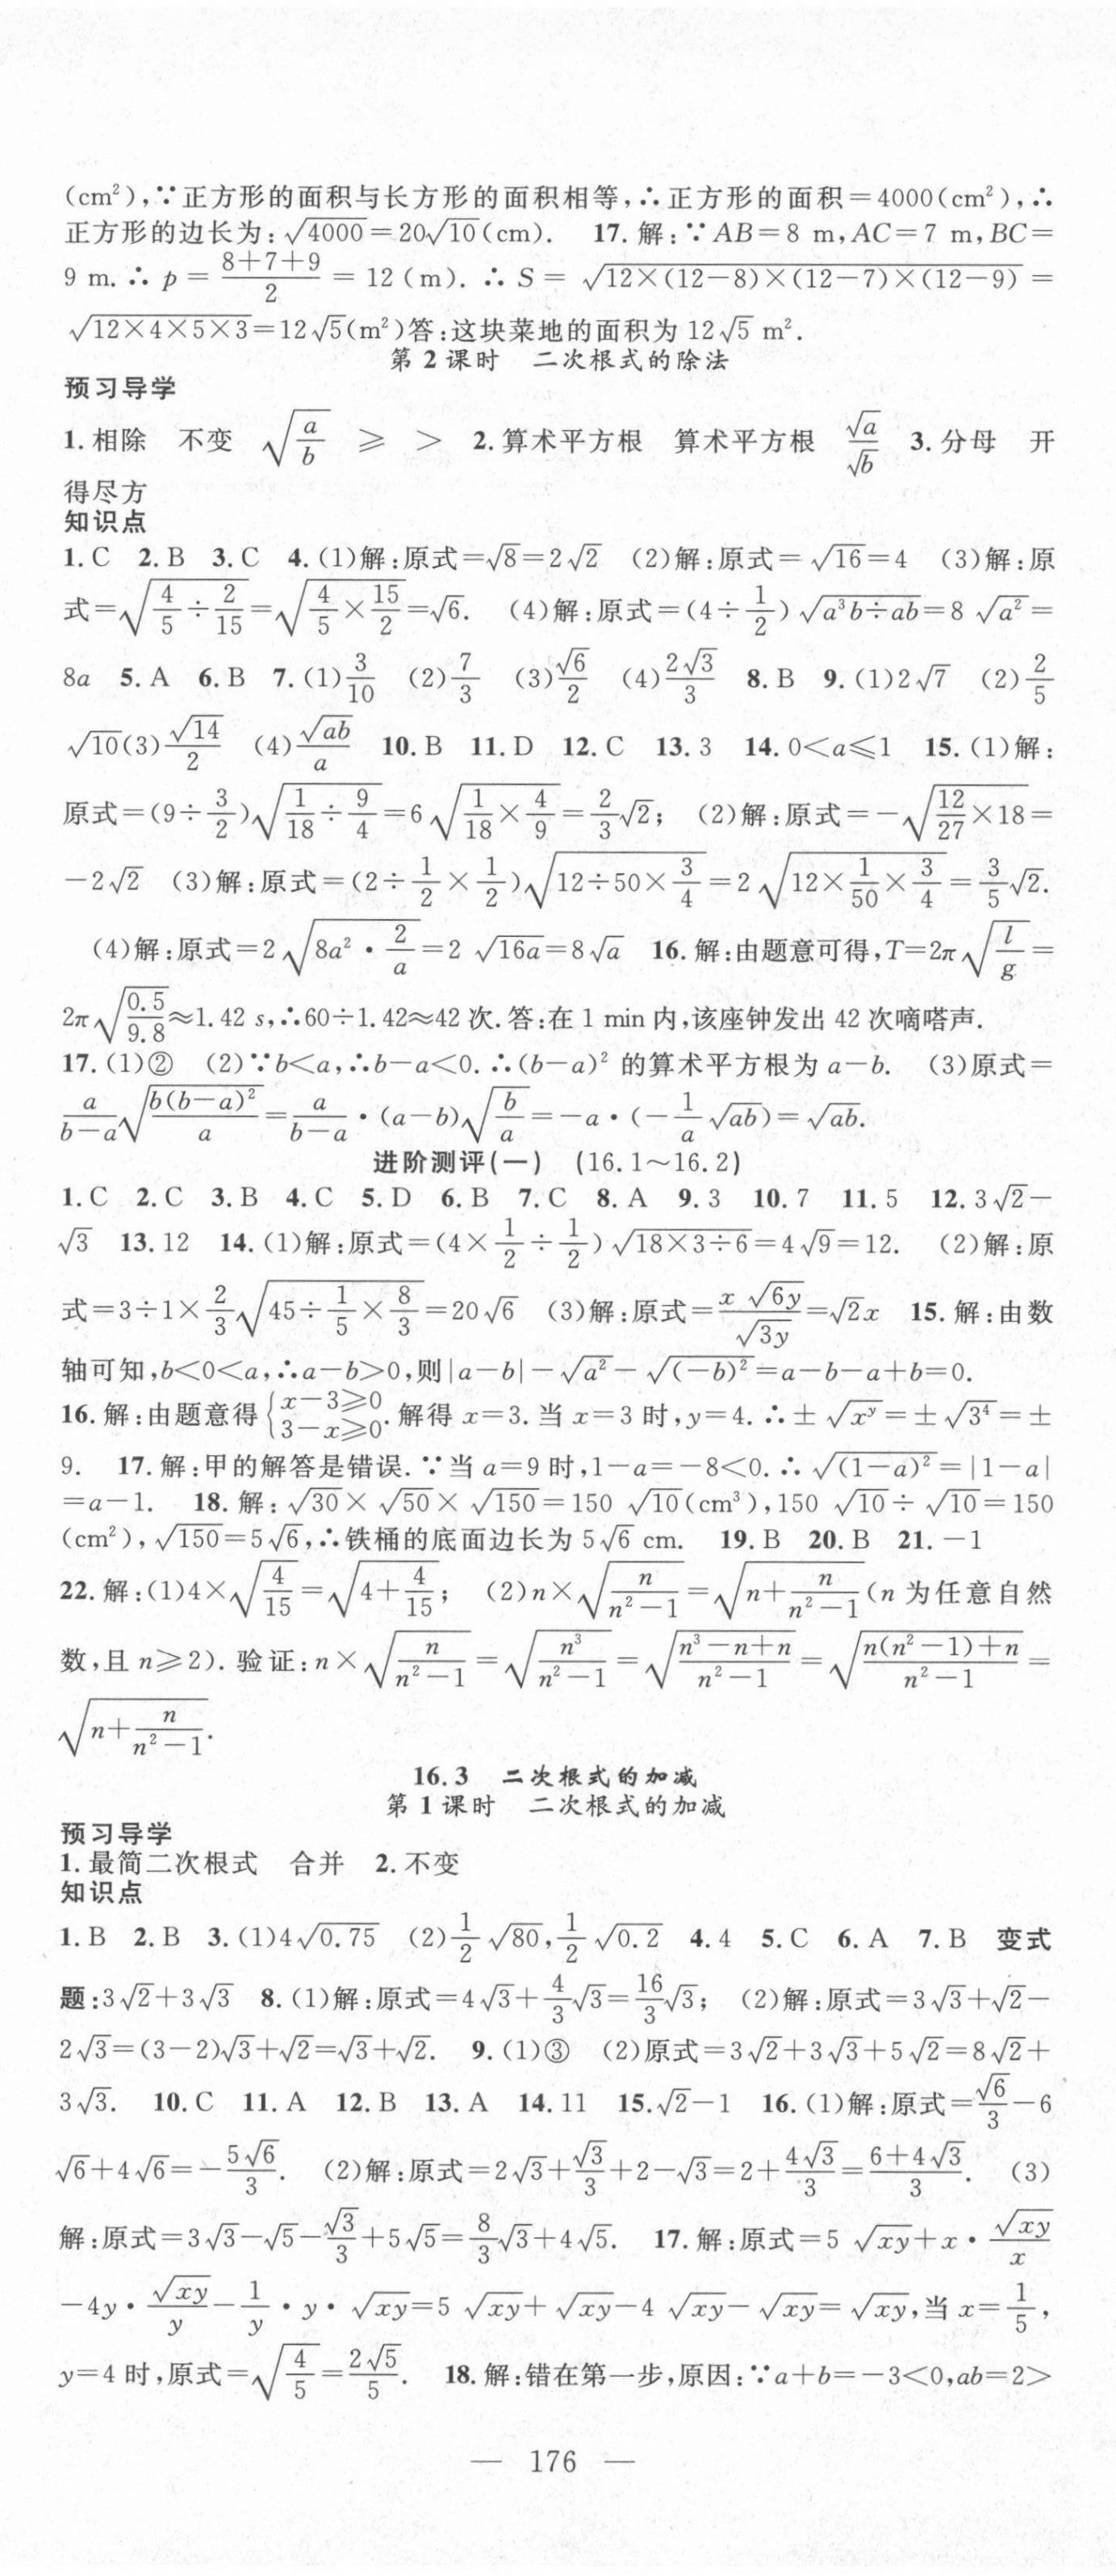 (cm²),∵正方形的面积与长方形的面积相等,∴正方形的面积=4000(cm²),∴
正方形的边长为:√4000=20√10(cm). 17.解:∵AB=8 m,AC=7 m,BC=
9 m.∴p=(8+7+9)/2=12(m).∴S=√(12×(12-8)×(12-7)×(12-9))=
√(12×4×5×3)=12√5(m²)答:这块菜地的面积为12√5 m².
第2课时 二次根式的除法
预习导学
1.相除 不变 √(a/b) ≥ > 2.算术平方根 算术平方根 √a/√b 3.分母 开
得尽方
知识点
1.C 2.B 3.C 4.(1)解:原式=√8=2√2 (2)解:原式=√16=4 (3)解:原
式=√(4/5÷2/15)=√(4/5×15/2)=√6. (4)解:原式=(4÷1/2)√(a³b÷ab)=8√(a²)=
8a 5.A 6.B 7.(1)3/10 (2)7/3 (3)√6/2 (4)2√3/3 8.B 9.(1)2√7 (2)2/5
√10(3)√14/2 (4)√(ab)/a 10.B 11.D 12.C 13.3 14.0<a≤1 15.(1)解:
原式=(9÷3/2)√(1/18÷9/4)=6√(1/18×4/9)=2/3√2; (2)解:原式=-√(12/27×18)=
-2√2 (3)解:原式=(2÷1/2×1/2)√(12÷50×3/4)=2√(12×1/50×3/4)=3/5√2.
(4)解:原式=2√(8a²·2/a)=2√(16a)=8√a 16.解:由题意可得,T=2π√(l/g)=
2π√(0.5/9.8)≈1.42 s,∴60÷1.42≈42次.答:在1 min内,该座钟发出42次嘀嗒声.
17.(1)② (2)∵b<a,∴b-a<0.∴(b-a)²的算术平方根为a-b. (3)原式=
a/(b-a)√(b(b-a)²/a)=a/(b-a)·(a-b)√(b/a)=-a·(-1/a√(ab))=√(ab).
进阶测评(一) (16.1～16.2)
1.C 2.C 3.B 4.C 5.D 6.B 7.C 8.A 9.3 10.7 11.5 12.3√2-
√3 13.12 14.(1)解:原式=(4×1/2÷1/2)√(18×3÷6)=4√9=12. (2)解:原
式=3÷1×2/3√(45÷1/5×8/3)=20√6 (3)解:原式=x√(6y)/√(3y)=√2x 15.解:由数
轴可知,b<0<a,∴a-b>0,则|a-b|-√(a²)-√((-b)²)=a-b-a+b=0.
16.解:由题意得{x-3≥0 3-x≥0.解得x=3.当x=3时,y=4.∴±√(x^y)=±√(3⁴)=±
9. 17.解:甲的解答是错误.∵当a=9时,1-a=-8<0.∴√((1-a)²)=|1-a|
=a-1. 18.解:√30×√50×√150=150√10(cm³),150√10÷√10=150
(cm²),√150=5√6,∴铁桶的底面边长为5√6 cm. 19.B 20.B 21.-1
22.解:(1)4×√(4/15)=√(4+4/15); (2)n×√(n/(n²-1))=√(n+n/(n²-1))(n为任意自然
数,且n≥2).验证:n×√(n/(n²-1))=√(n³/(n²-1))=√((n³-n+n)/(n²-1))=√((n(n²-1)+n)/(n²-1))=
√(n+n/(n²-1)).
16.3 二次根式的加减
第1课时 二次根式的加减
预习导学
1.最简二次根式 合并 2.不变
知识点
1.B 2.B 3.(1)4√0.75 (2)1/2√80,1/2√0.2 4.4 5.C 6.A 7.B 变式
题:3√2+3√3 8.(1)解:原式=4√3+4/3√3=16/3√3; (2)解:原式=3√3+√2-
2√3=(3-2)√3+√2=√3+√2. 9.(1)③ (2)原式=3√2+3√3+5√2=8√2+
3√3. 10.C 11.A 12.B 13.A 14.11 15.√2-1 16.(1)解:原式=√6/3-6
√6+4√6=-5√6/3. (2)解:原式=2√3+√3/3+2-√3=2+4√3/3=(6+4√3)/3. (3)
解:原式=3√3-√5-√3/3+5√5=8/3√3+4√5. 17.解:原式=5√(xy)+x·√(xy)/x
-4y·√(xy)/y-1/y·y·√(xy)=5√(xy)+√(xy)-4√(xy)-√(xy)=√(xy),当x=1/5,
y=4时,原式=√(4/5)=2√5/5. 18.解:错在第一步,原因:∵a+b=-3<0,ab=2>
— 176 —